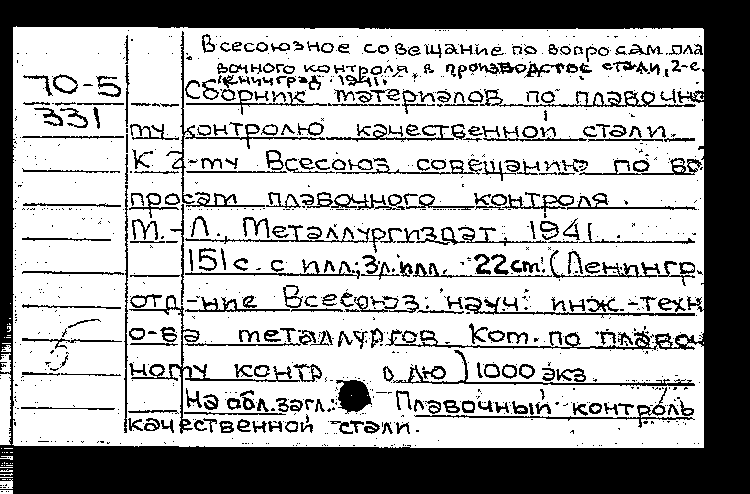 Всесоюзное совещание по вопросам пла
вочного контроля, в производстве стали, 2-е.
Ленинград. 1941.
70-5
331
Сборник материалов по плавочно
му контролю качественной стали.
К 2-му Всесоюз. совещанию по во
просам плавочного контроля.
М.-Л., Металлургиздат, 1941.
151 с. с илл.; 3 л. илл. 22 cm. (Ленингр.
отд-ние Всесоюз. науч. инж.-техн
о-ва металлургов. Ком. по плавоч
ному контр лю) 1000 экз.
5
На обл. загл.: Плавочный контроль
качественной стали.